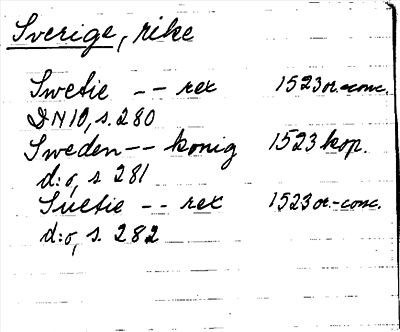 Sverige, rike
Swetie -- rex 1523 or.-conc.
DN 10, s. 280
Sweden -- konig 1523 kop.
d:o, s. 281
Suetie -- rex 1523 or.-conc.
d:o, s. 282